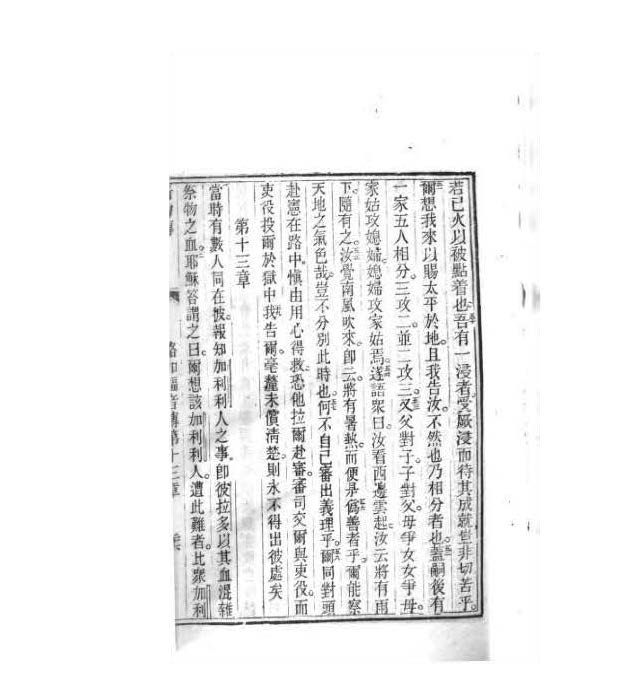 若已火以被點着也。吾有一浸者受厥浸而待其成就豈非切苦乎。
爾想我來以賜太平於地。且我告汝。不然也乃相分者也。蓋嗣後有
一家五人相分。三攻二並二攻三。又父對子子對父。母爭女女爭母。
家姑攻媳婦。媳婦攻家姑焉。遂語眾曰汝看西邊雲起汝云將有雨
下。隨有之。汝覺南風吹來。卽云將有暑熱。而便是。僞善者乎。爾能察
天地之氣色哉。豈不分別此時也。何不自己審出義理乎。爾同對頭
赴憲在路中。慎由用心得救。恐他拉爾赴審。審司交爾與吏役。而
吏役投爾於獄中。我告爾。毫釐未償清楚。則永不得出彼處矣
第十三章
當時有數人同在彼報知加利利人之事。卽彼拉多以其血混雜
祭物之血。耶穌答謂之曰。爾想該加利利人遭此難者。比眾加利
路加福音傳第十三章